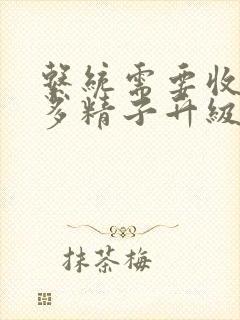 繫統需要收
多精子升級
抹茶梅